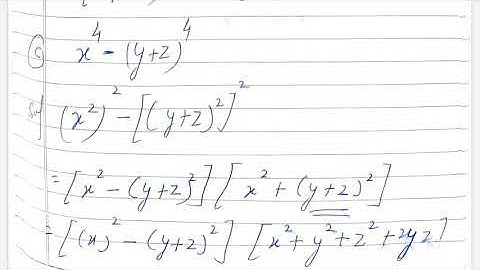 (5) x⁴ - (y+z)⁴
Sol (x²)² - [(y+z)²]²
= [x² - (y+z)²] [x² + (y+z)²]
= [(x)² - (y+z)²] [x² + y² + z² + 2yz]